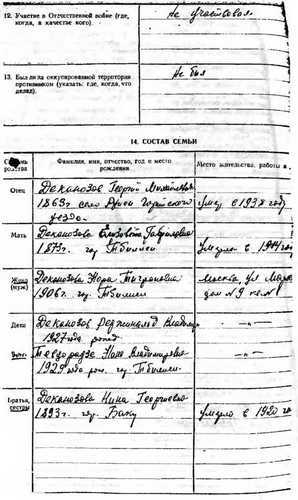 12. Участие в Отечественной войне (где,
когда, в качестве кого)
Не участвовал.
13. Был ли на оккупированной территории
противником (указать: где, когда, что
делал).
Не был
14. СОСТАВ СЕМЬИ
родства
Фамилия, имя, отчество, год и место
рождения
Место жительства, работы и
Отец
Деканозов Георгий
1863г. село Горийского
уезда.
умер в 1938 году
Мать
Деканозова Елизавета
1873г. гор Тбилиси
умерла в 1944
Жена
(муж)
Деканозова Нора Тиграновна
1906г. гор. Тбилиси
Москва, ул
дом N 9
Дети
Деканозов Реджинальд
1927 года рожд
—"—
Нана Владимировна
1929 года рож. гор. Тбилиси.
—"—
Братья,
сестры
Деканозова Нина Георгиевна
1893г. гор. Баку
умерла в 1920